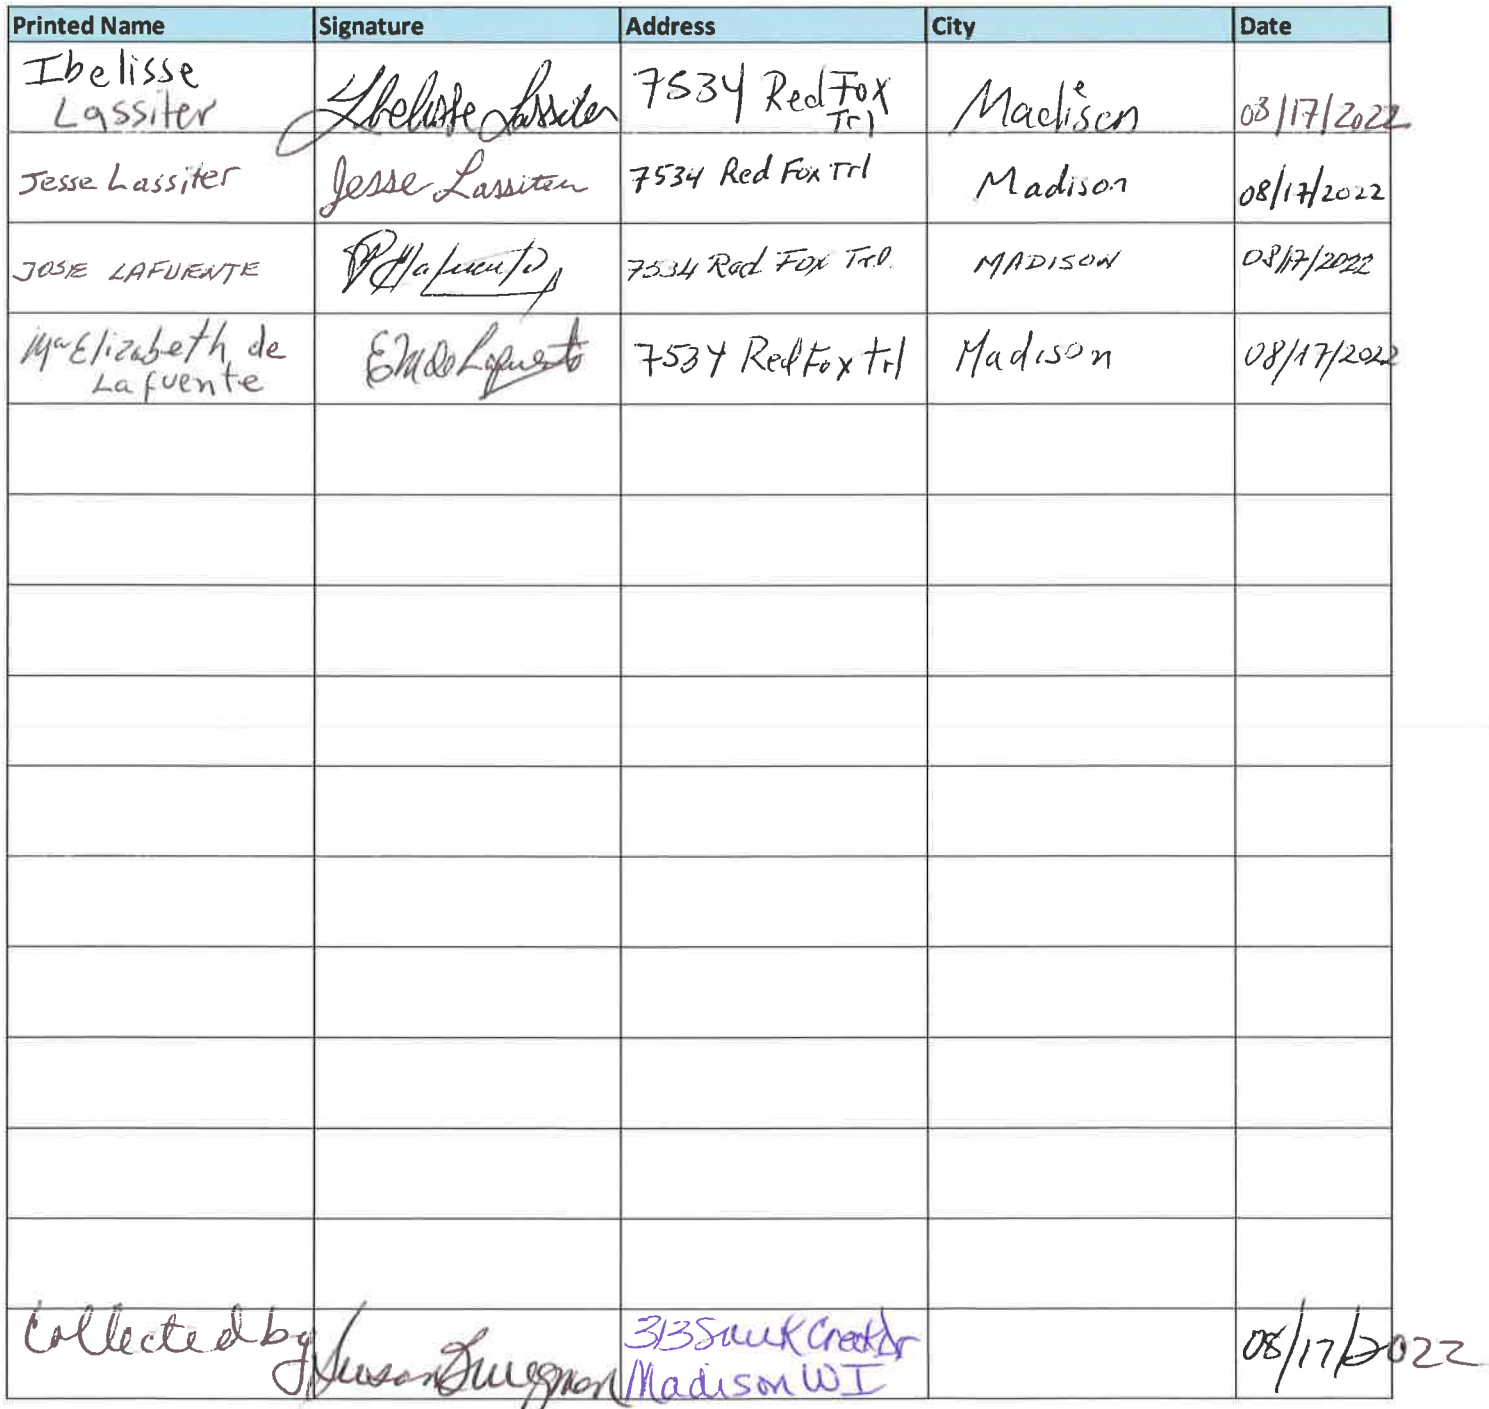 Printed Name Signature Address City Date
Ibelisse Lassiter Ibelisse Lassiter 7534 Red Fox Trl Madison 08/17/2022
Jesse Lassiter Jesse Lassiter 7534 Red Fox Trl Madison 08/17/2022
JOSE LAFUENTE 7534 Red Fox Trl. MADISON 08/17/2022
Ma Elizabeth de Lafuente EM de Lafuente 7534 Red Fox Trl Madison 08/17/2022
Collected by Susan 313 Sauk Creek Dr 08/17/2022
Madison WI